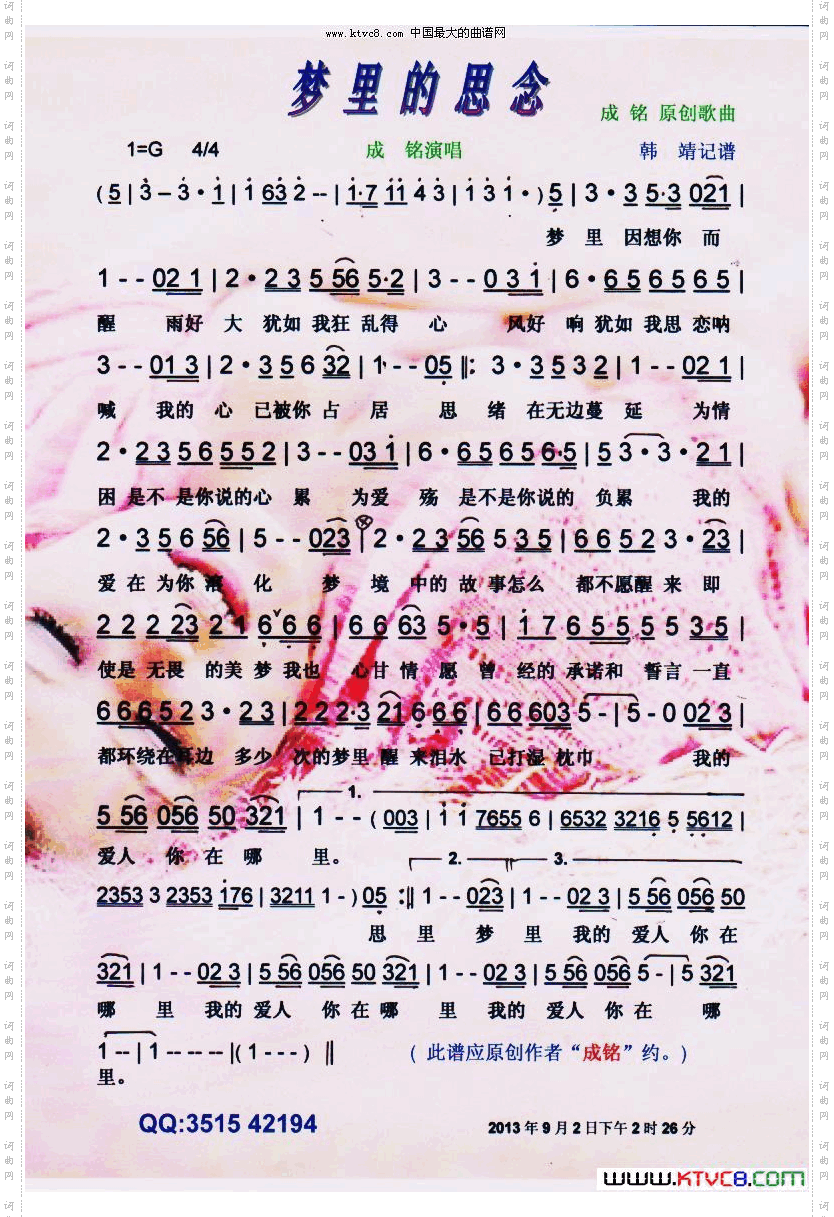 www.ktvc8.com 中国最大的曲谱网
梦里的思念
成 铭 原创歌曲
1=G 4/4 成 铭演唱 韩 靖记谱
(5|3–3·1|1 63 2--|1·7 11 4 3|1 3 1·)5|3·3 5·3 021|
梦 里 因想你 而
1--02 1|2·2 3 5 56 5·2|3--0 3 1|6·6 5 6 5 6 5|
醒 雨好 大 犹如 我狂 乱得 心 风好 响 犹如 我思 恋呐
3--01 3|2·3 5 6 32|1--05‖: 3·3 5 3 2|1--02 1|
喊 我的 心 已被你 占 居 思 绪 在无边蔓 延 为情
2·2 3 5 6 5 5 2|3--03 1|6·6 5 6 5 6·5|5 3·3·2 1|
困 是不 是你说的心 累 为爱 殇 是不是你说的 负累 我的
2·3 5 6 56|5--023|2·2 3 56 5 3 5|6 6 5 2 3·23|
爱 在 为你 溶 化 梦 境 中的 故 事怎么 都不愿醒 来 即
2 2 2 23 2 1 6 6 6|6 6 63 5·5|1 7 6 5 5 5 5 3 5|
使是 无畏 的美 梦 我也 心甘 情 愿 曾 经的 承诺和 誓言 一直
6 6 6 5 2 3·2 3|2 2 2·3 21 6 6 6|6 6 603 5-|5-0 02 3|
都环绕在耳边 多少 次的梦里 醒 来泪水 已打湿 枕巾 我的
5 56 056 50 321|1--(003|1 1 7655 6|6532 3216 5 5612|
1.
爱人 你 在 哪 里。
2. 3.
2353 3 2353 176|3211 1-)05:‖1--023|1--02 3|5 56 056 50
思 里 梦 里 我的 爱人 你 在
321|1--02 3|5 56 056 50 321|1--02 3|5 56 056 5-|5 321
哪 里 我的 爱人 你 在 哪 里 我的 爱人 你 在 哪
1--|1-- -- --|(1---)‖ ( 此谱应原创作者“成铭”约。)
里。
QQ:3515 42194
2013 年 9 月 2 日下午 2 时 26 分
www.KTVC8.com